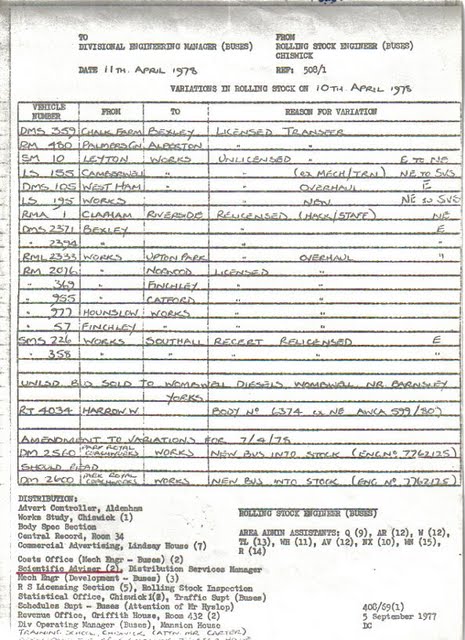 TO FROM
DIVISIONAL ENGINEERING MANAGER (BUSES) ROLLING STOCK ENGINEER (BUSES)
CHISWICK
DATE 11TH. APRIL 1978 REF: 508/1
VARIATIONS IN ROLLING STOCK ON 10TH. APRIL 1978
VEHICLE NUMBER FROM TO REASON FOR VARIATION
DMS 359 CHALK FARM BEXLEY LICENSED TRANSFER
RM 480 PALMERS GN ALPERTON " "
SM 10 LEYTON WORKS UNLICENSED " E TO NE
LS 155 CAMBERWELL " " (EX MECH/TRN) NE TO SVS
DMS 105 WEST HAM " " OVERHAUL E
LS 195 WORKS " NEW NE TO SVS
RMA 1 CLAPHAM RIVERSIDE RELICENSED (HACK/STAFF) NE
DMS 2371 BEXLEY " " E
" 2394 " " " "
RML 2333 WORKS UPTON PARK " OVERHAUL "
RM 2016 " NORWOOD LICENSED "
" 369 " FINCHLEY " "
" 955 " CATFORD " "
" 977 HOUNSLOW WORKS " "
" 57 FINCHLEY " " "
SMS 726 WORKS SOUTHALL RECERT RELICENSED E
" 358 " " " " "
UNLSD. B/D SOLD TO WOMBWELL DIESELS, WOMBWELL NR. BARNSLEY
YORKS
RT 4034 HARROW W. BODY No 6374 ex NE AWCA 599/80)
AMENDMENT TO VARIATIONS FOR 7/4/78
DM 2560 PARK ROYAL COACHWORKS WORKS NEW BUS INTO STOCK (ENG No. 7762125)
SHOULD READ
DM 2600 PARK ROYAL COACHWORKS WORKS NEW BUS INTO STOCK (ENG No. 7762125)
DISTRIBUTION:
Advert Controller, Aldenham
Works Study, Chiswick (1)
Body Spec Section
Central Record, Room 34
Commercial Advertising, Lindsey House (7)
Costs Office (Mech Engr - Buses) (2)
Scientific Adviser (2), Distribution Services Manager
Mech Engr (Development - Buses) (3)
R S Licensing Section (5), Rolling Stock Inspection
Statistical Office, Chiswick (2), Traffic Supt (Buses)
Schedules Supt - Buses (Attention of Mr Hyslop)
Revenue Office, Griffith House, Room 432 (2)
Div Operating Manager (Buses), Mansion House
TRAINING SCHOOL, CHISWICK (ATTN. MR. CARTER)
ROLLING STOCK ENGINEER (BUSES)
AREA ADMIN ASSISTANTS: Q (9), AR (12), W (12),
TL (13), WH (11), AV (12), NX (10), MN (15),
R (14)
408/69(1)
5 September 1977
DC